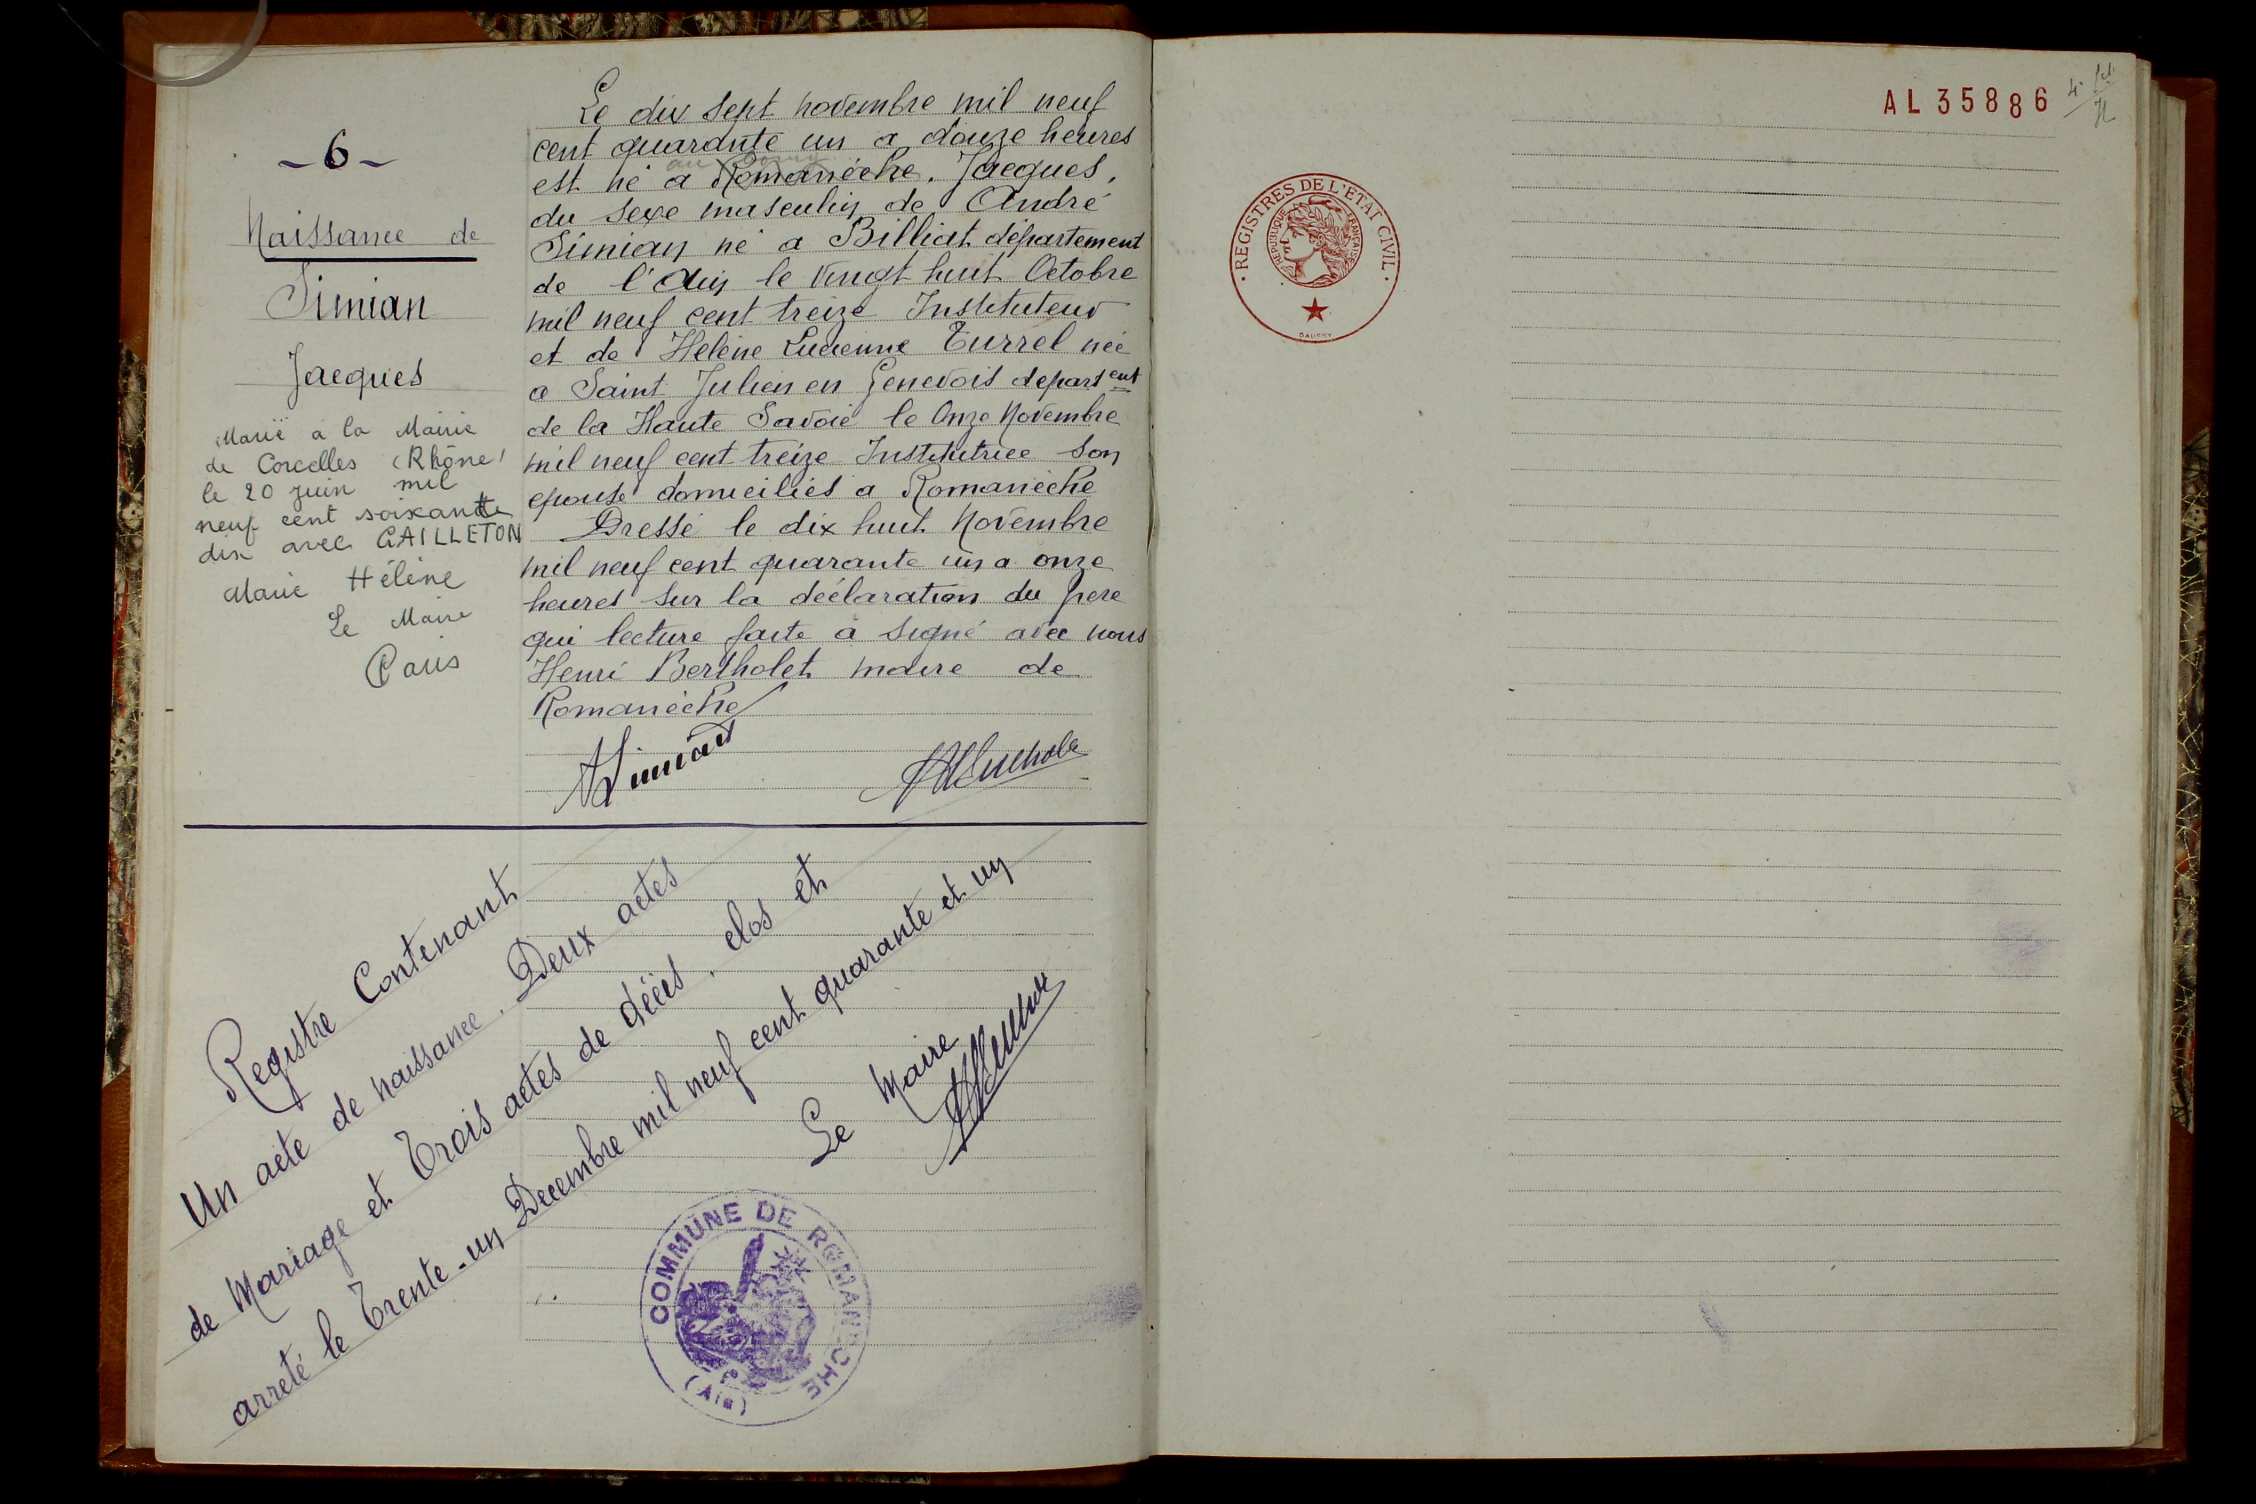 - 6 -
Naissance de
Simian
Jacques
Marié a la Mairie
de Corcelles (Rhône)
le 20 juin mil
neuf cent soixante
dix avec GAILLETON
Marie Hélène
Le Maire
Le dix sept novembre mil neuf
cent quarante un a douze heures
est né a Romanèche. Jacques,
du sexe masculin de André
Simian né a Billiat département
de l'Ain le vingt huit Octobre
mil neuf cent treize Instituteur
et de Helène Lucienne Turrel née
a Saint Julien en Genevois départent
de la Haute Savoie le Onze Novembre
mil neuf cent treize Institutrice son
epouse domiciliés a Romanèche
Dressé le dix huit Novembre
mil neuf cent quarante un a onze
heures sur la déclaration du père
qui lecture faite à signé avec nous
Henri Bertholet maire de
Romanèche
ASimian
Registre Contenant
Un acte de naissance. Deux actes
de Mariage et Trois actes de décès, clos et
arreté le Trente-un Decembre mil neuf cent quarante et un
Le Maire
COMMUNE DE ROMANÈCHE
(Ain)
AL 35886
REGISTRES DE L'ETAT CIVIL
REPUBLIQUE FRANÇAISE